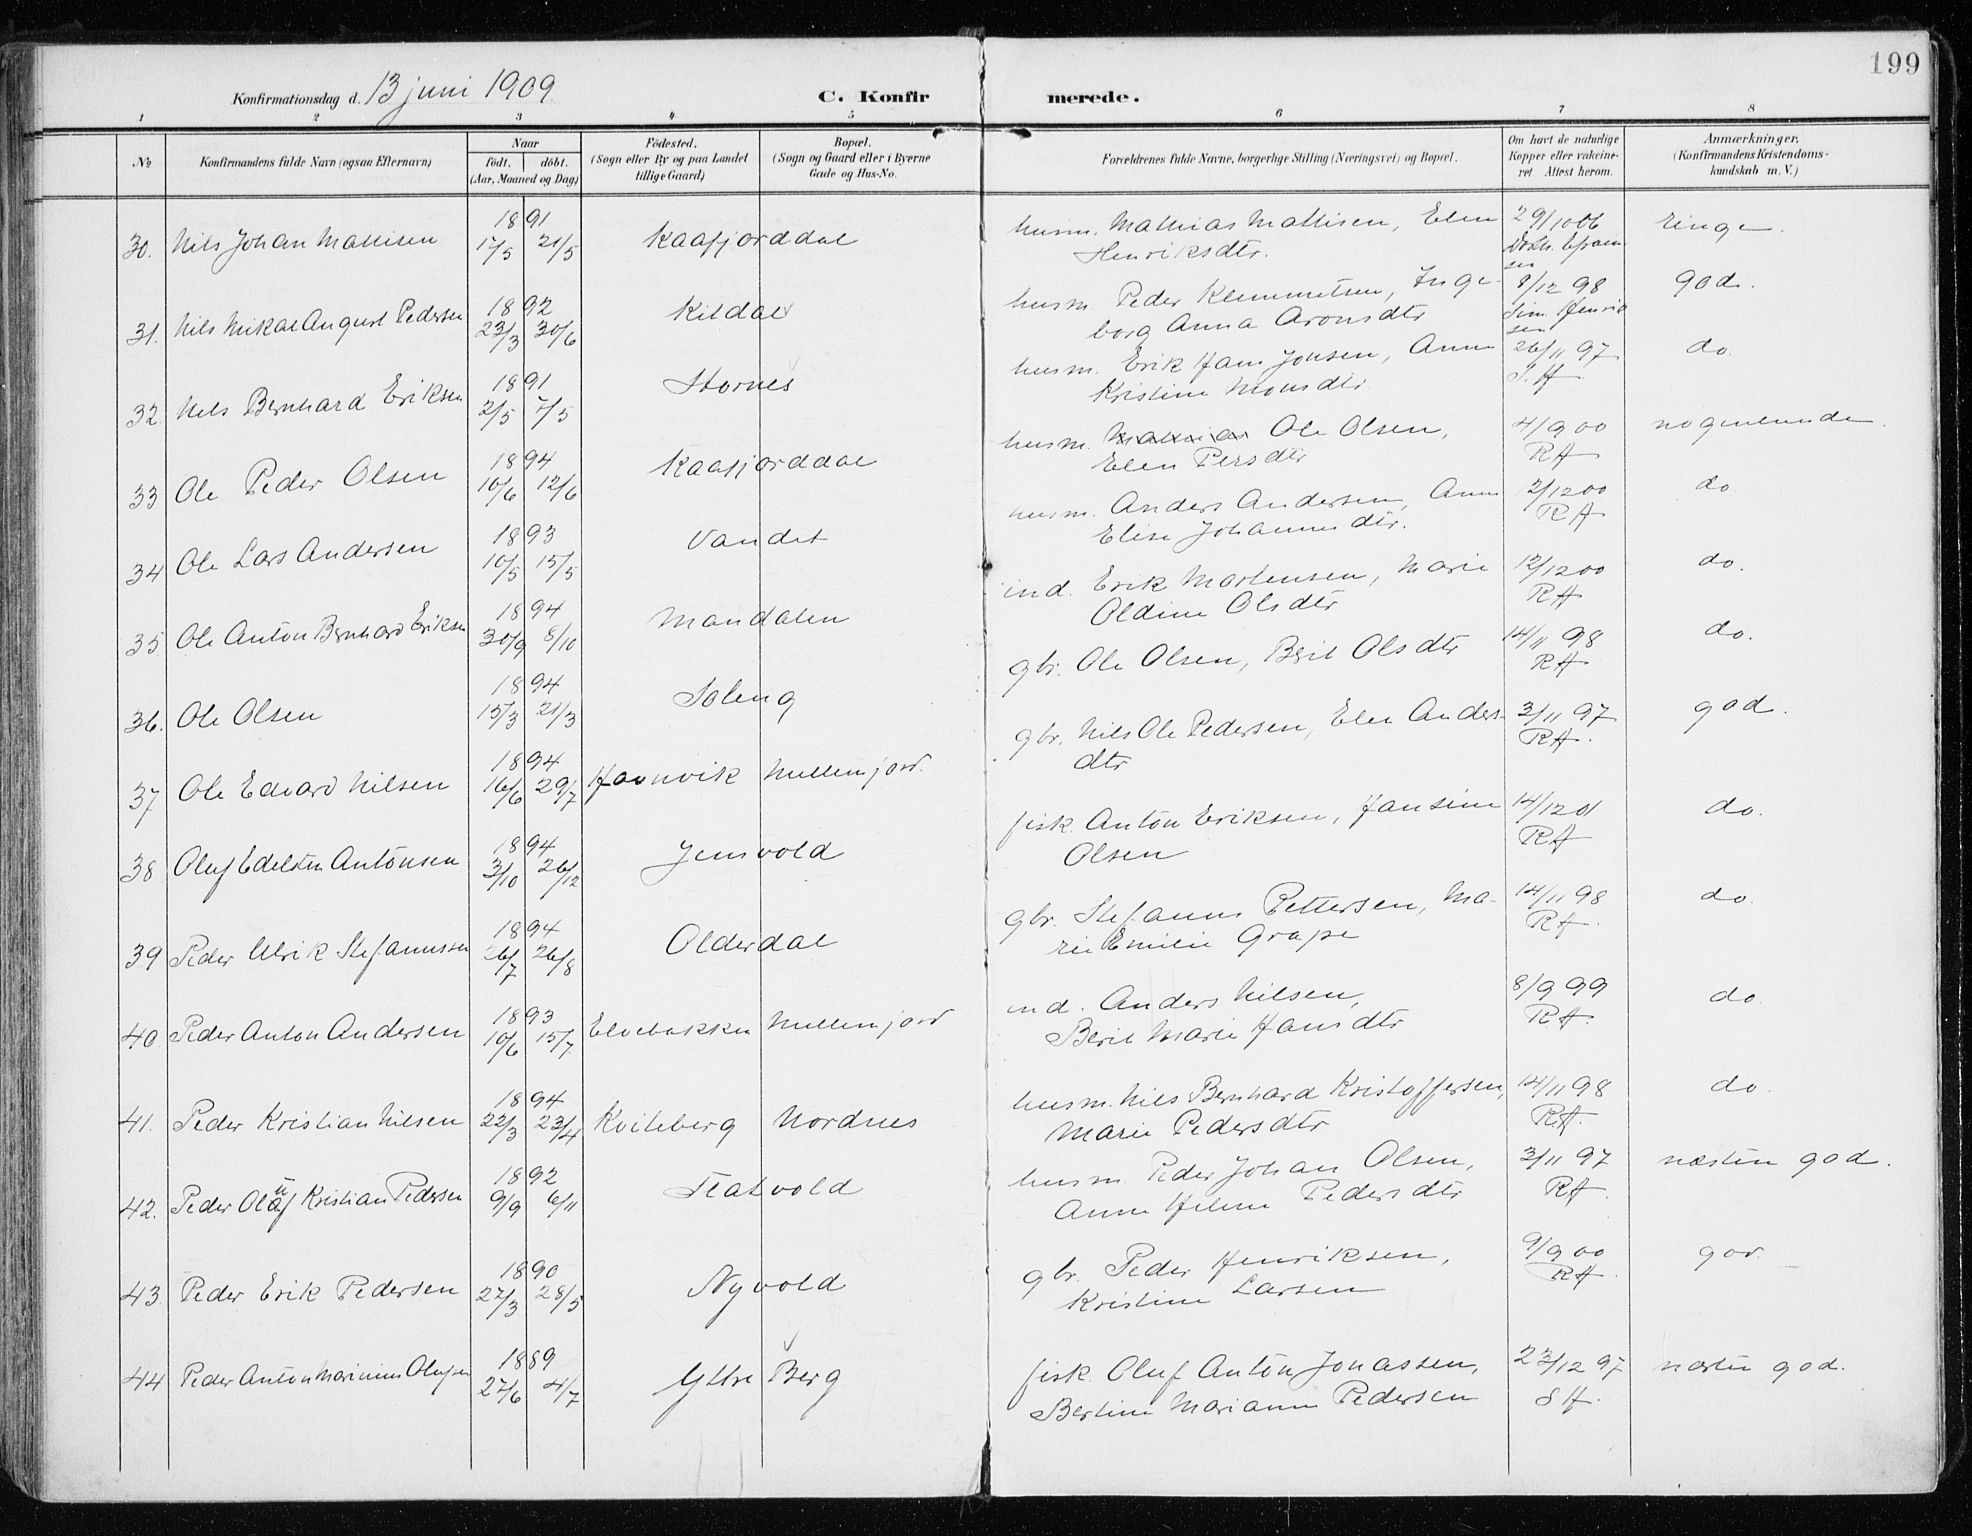 199
Konfirmationsdag d. 13 juni 1909
C. Konfirmerede.
1 2 3 4 5 6 7 8
No
Konfirmandens fulde Navn (ogsaa Efternavn)
Naar
födt. döbt.
(Aar, Maaned og Dag)
Födested.
(Sogn eller By og paa Landet
tillige Gaard)
Bopæl.
(Sogn og Gaard eller i Byerne
Gade og Hus-No.
Forældrenes fulde Navne, borgerlige Stilling (Næringsvei) og Bopæl.
Om havt de naturlige
Kopper eller vakcine-
ret. Attest herom.
Anmærkninger.
(Konfirmandens Kristendoms-
kundskab m. V.)
30. Nils Johan Mathisen 1891 17/5 21/5 Kaafjorddal husm. Mathias Mathisen, Elen
Henriksdtr. 29/10 06 ringe.
31. Nils Mikal August Pedersen 1892 23/3 30/6 Kildal husm. Peder Klemmetsen, Inge-
borg Anna Aronsdtr 8/12 98 god.
32. Nils Bernhard Eriksen 1891 2/5 7/5 Stornes husm. Erik Hans Jonsen, Anne
Kristine Monsdtr 26/11 97 do.
33 Ole Peder Olsen 1894 10/6 12/6 Kaafjorddal husm. Mathias Ole Olsen,
Elen Persdtr 4/9 00 RH nogenlunde.
34 Ole Lars Andersen 1893 10/5 15/5 Vandet husm. Anders Andersen, Anne
Elise Johannesdtr. 2/12 00 RH do
35 Ole Anton Bernhard Eriksen 1894 30/9 8/10 Mandalen ind. Erik Mortensen, Marie
Oldine Olsdtr 12/12 00 RH do.
36. Ole Olsen 1894 15/3 21/3 Soleng gbr. Ole Olsen, Berit Olsdtr 14/11 98 RH do.
37 Ole Edvard Nilsen 1894 16/6 29/7 Havnvik Mellemjord. gbr. Nils Ole Pedersen, Elen Anders-
dtr 3/11 97 RH. god.
38 Oluf Edelsten Antonsen 1894 3/10 26/12 Jensvold fisk. Anton Eriksen, Hansine
Olsen 14/12 01 RH do.
39 Peder Ulrik Stefanussen 1894 26/7 26/8 Olderdal gbr. Stefanus Pettersen, Ma-
rie Emilie Grape 14/11 98 RH. do.
40 Peder Anton Andersen 1893 10/6 15/7 Elvebakken Mellemjord ind. Anders Nilsen,
Berit Marie Hansdtr 8/9 99 RH. do
41. Peder Kristian Nilsen 1894 22/3 23/4 Kviteberg Nordnes husm. Nils Bernhard Kristoffersen,
Marie Pedersdtr 14/11 98 RH. do.
42. Peder Oluf Kristian Pedersen 1892 9/9 6/11 Flatvold husm. Peder Johan Olsen,
Anne Helene Pedersdtr 3/11 97 RH. næsten god.
43 Peder Erik Pedersen 1890 27/3 28/5 Nyvold gbr. Peder Henriksen,
Kristine Larsen 9/9 00 RH. god.
44 Peder Anton Marinius Olufsen 1889 27/6 4/7 Yttre Berg fisk. Oluf Anton Jonassen,
Bertine Marianne Pedersen 23/12 97 SH. næsten god.